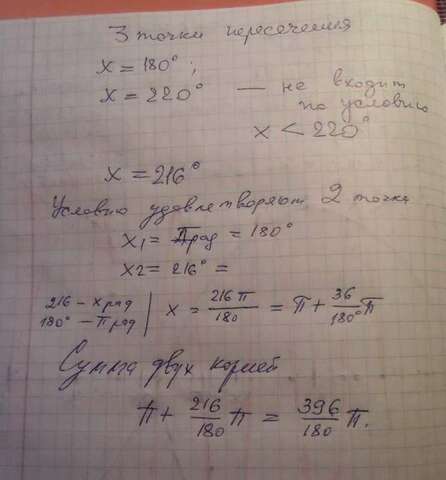 3 точки пересечения
x = 180°;
x = 220° — не входит
по условию
x < 220°
x = 216°
Условию удовлетворяют 2 точки
x1 = П рад = 180°
x2 = 216° =
216 – x рад
180° – П рад
x = 216 П / 180 = П + 36 / 180° П
Сумма двух корней
П + 216/180 П = 396/180 П.